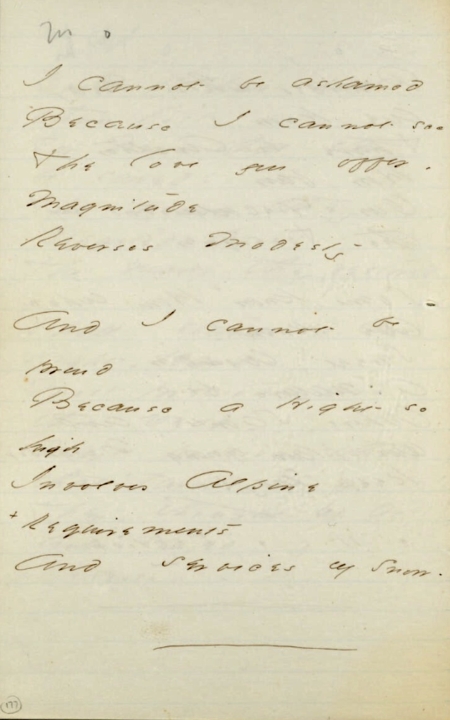 M o
I cannot be ashamed
Because I cannot see
The love you offer.
Magnitude
Reverses Modesty -
And I cannot be
proud
Because a Hight so
high
Involves Alpine
+ Requirements
And Services of Snow.
m